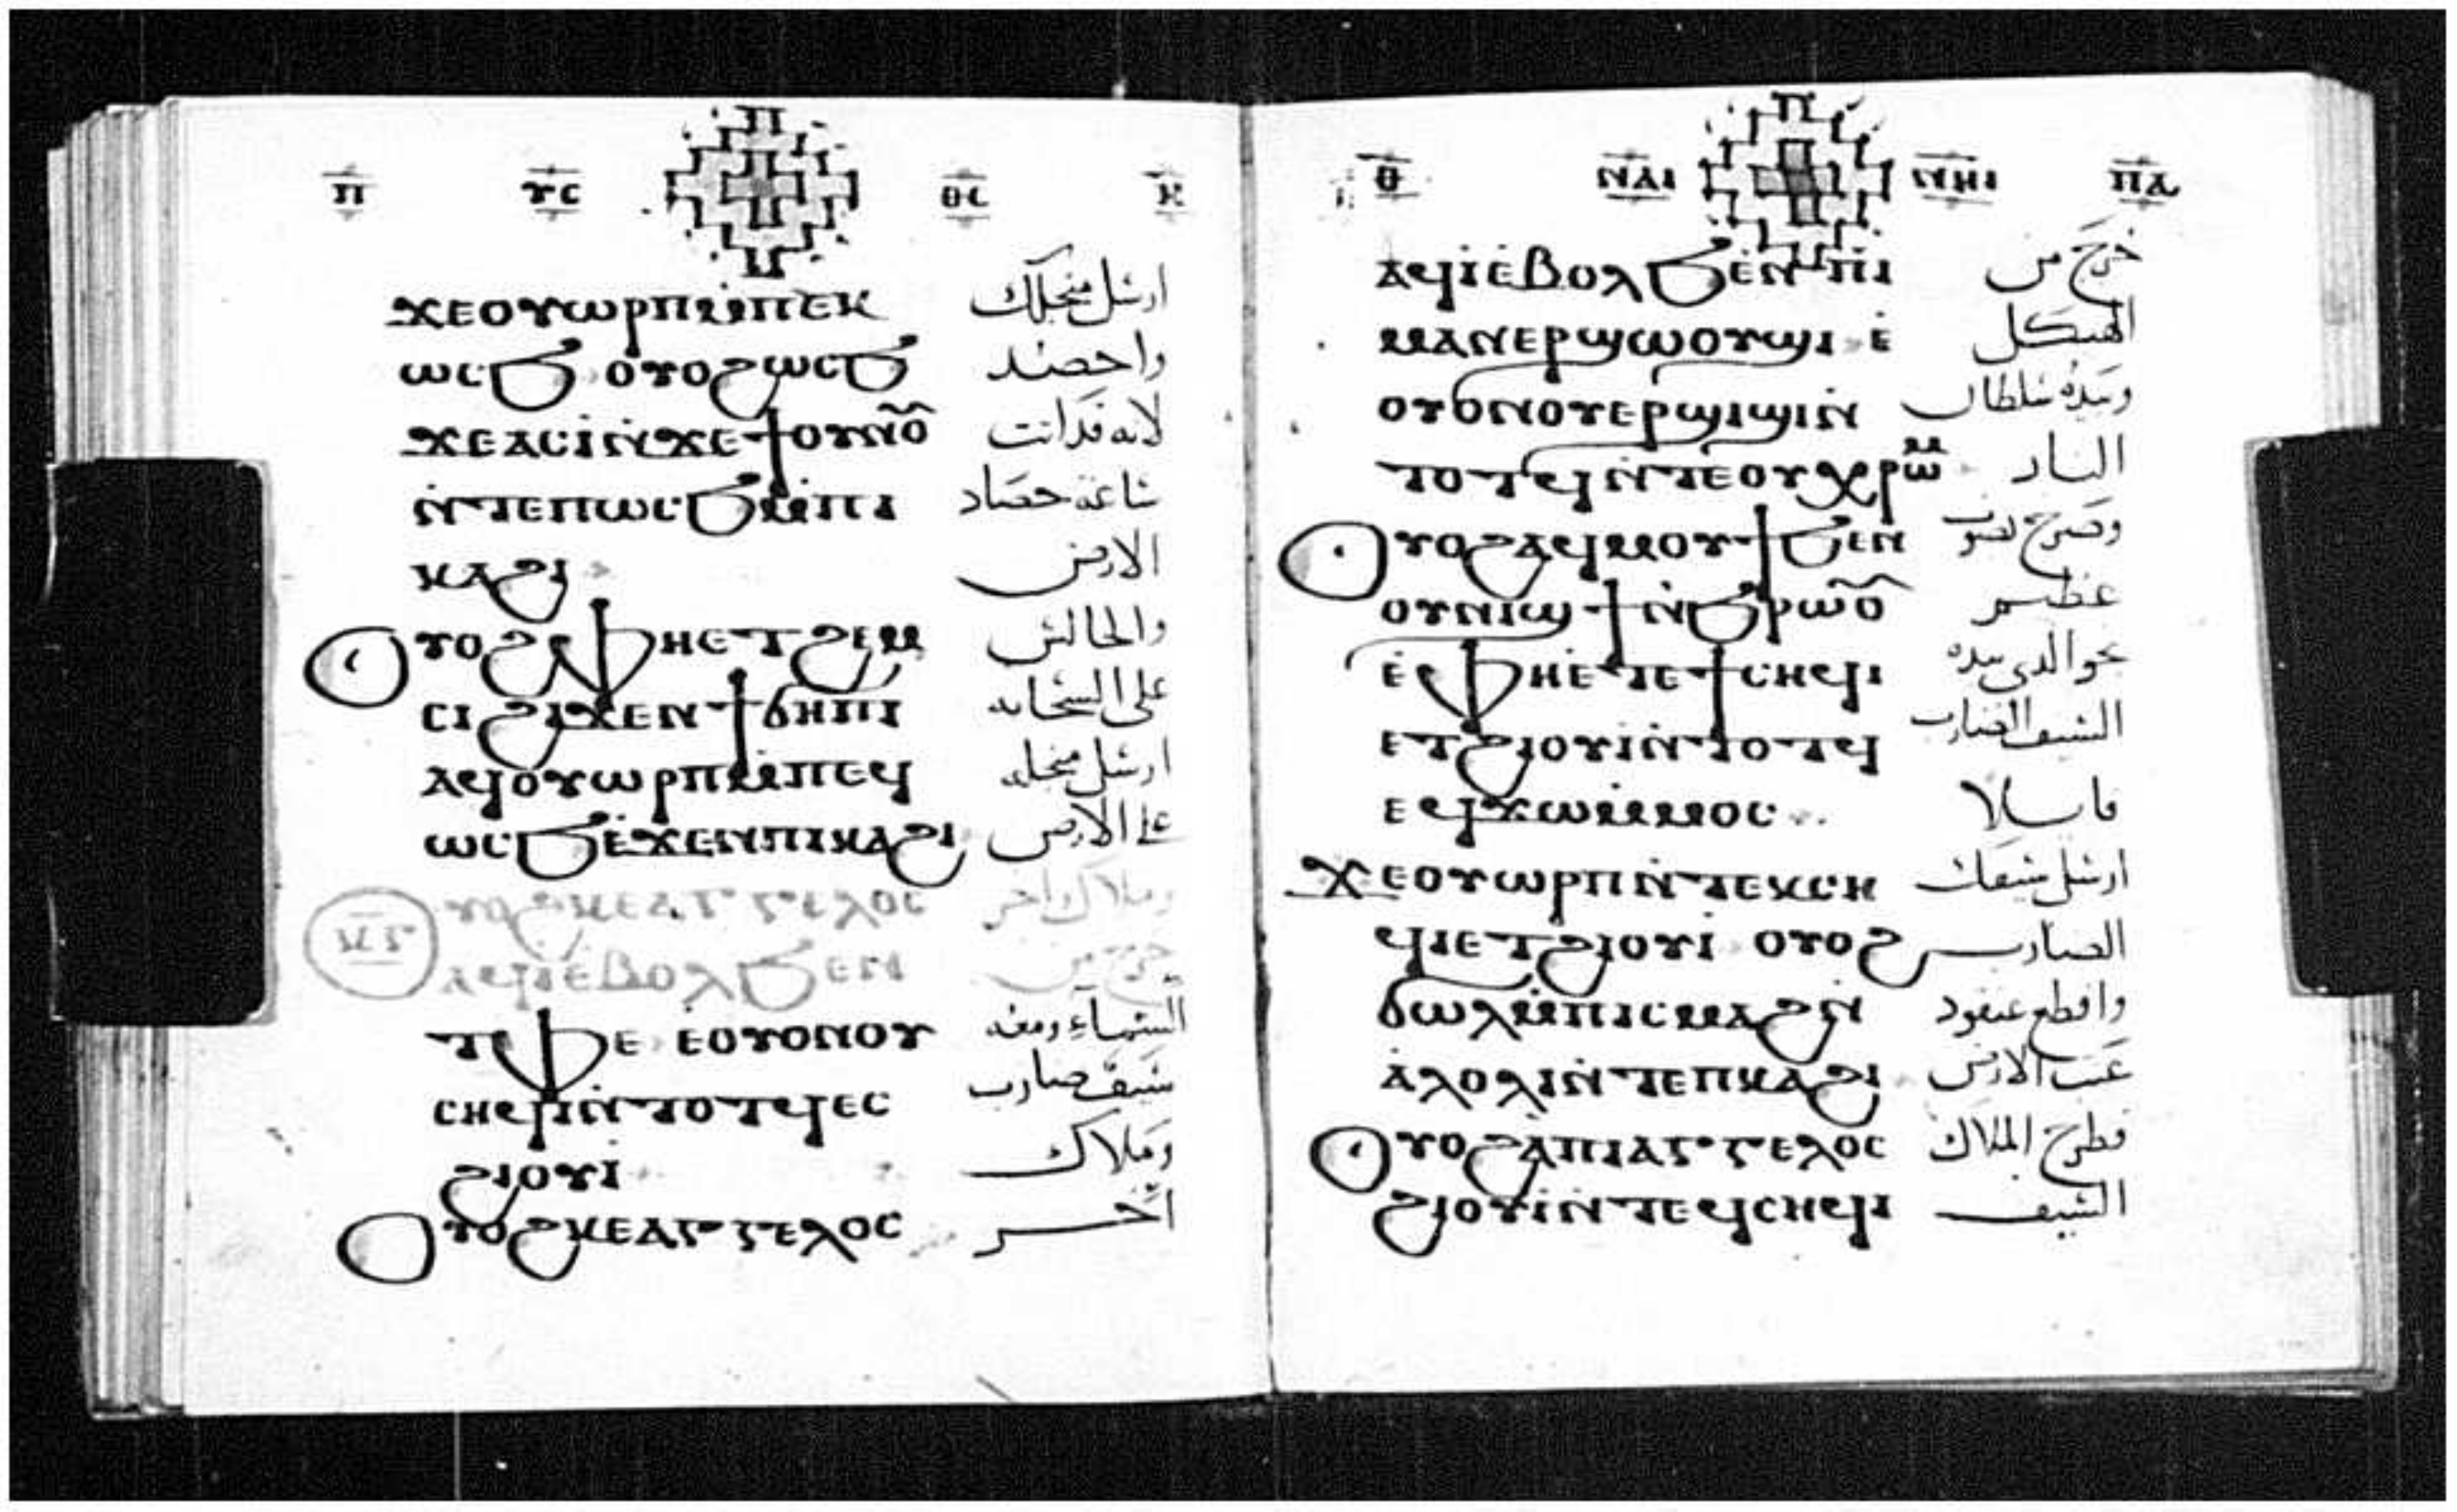 ⲡ ⲩⲥ ⲑⲥ ⲕ
ϫⲉⲟⲩⲱⲣⲡⲙ̀ⲡⲉⲕ ارسل منجلك
ⲱⲥϧ ⲟⲩⲟϩⲱⲥϧ واحصد
ϫⲉⲁⲥⲓ̀ⲛ̀ϫⲉϯⲟⲩⲛⲟ̅ لانه قد اتت
ⲛ̀ⲧⲉⲡⲱⲥϧⲙ̀ⲡⲓ ساعة حصاد
ⲕⲁϩⲓ الارض
ⲟⲩⲟϩⲫⲏⲉⲧϩⲉⲙ والجالس
ⲥⲓϩⲓϫⲉⲛϯϭⲏⲡⲓ على السحابه
ⲁϥⲟⲩⲱⲣⲡⲙ̀ⲡⲉϥ ارسل منجله
ⲱⲥϧⲉ̀ϫⲉⲛⲡⲓⲕⲁϩⲓ على الارض
ⲟⲩⲟϩⲕⲉⲁⲅⲅⲉⲗⲟⲥ وملاك اخر
ⲁϥⲓ̀ⲉ̀ⲃⲟⲗϧⲉⲛ خرج من
ⲧⲫⲉ ⲉ̀ⲟⲩⲟⲛⲟⲩ السماء ومعه
ⲥⲏϥⲓⲛ̀ⲧⲟⲧϥⲉⲥ سيف ضارب
ϩⲓⲟⲩⲓ̀ وملاك
ⲟⲩⲟϩⲕⲉⲁⲅⲅⲉⲗⲟⲥ آخر
ⲑ ⲛⲁⲓ ⲛⲏⲓ ⲡⲁ
ⲁϥⲓ̀ⲉ̀ⲃⲟⲗϧⲉⲛⲡⲓ خرج من
ⲙⲁⲛⲉⲣϣⲱⲟⲩϣⲓ ⲉ̀ الهيكل
ⲟⲩⲟⲛⲟⲩⲉⲣϣⲓϣⲓⲛ̀ وبيده سلطان
ⲧⲟⲧϥⲛ̀ⲧⲉⲟⲩⲭⲣⲱⲙ النار
ⲟⲩⲟϩⲁϥⲙⲟⲩϯϧⲉⲛ وصرخ بصوت
ⲟⲩⲛⲓϣϯⲛ̀ϧⲣⲱⲟ̅ عظيم
ⲉ̀ⲫⲏⲉ̀ⲧⲉϯⲥⲏϥⲓ نحو الذي بيده
ⲉⲧϩⲓⲟⲩⲓ̀ⲛ̀ⲧⲟⲧϥ السيف الضارب
ⲉϥϫⲱⲙ̀ⲙⲟⲥ قايلا
ϫⲉⲟⲩⲱⲣⲡⲛ̀ⲧⲉⲕⲥⲏ ارسل سيفك
ϥⲓⲉⲧϩⲓⲟⲩⲓ̀ ⲟⲩⲟϩ الضارب
ϭⲱⲗⲙ̀ⲡⲓⲥⲙⲁϩⲛ̀ واقطع عنقود
ⲁ̀ⲗⲟⲗⲓⲛ̀ⲧⲉⲡⲕⲁϩⲓ عنب الارض
ⲟⲩⲟϩⲁ̀ⲡⲓⲁⲅⲅⲉⲗⲟⲥ فطرح الملاك
ϩⲓⲟⲩⲓ̀ⲛ̀ⲧⲉϥⲥⲏϥⲓ السيف